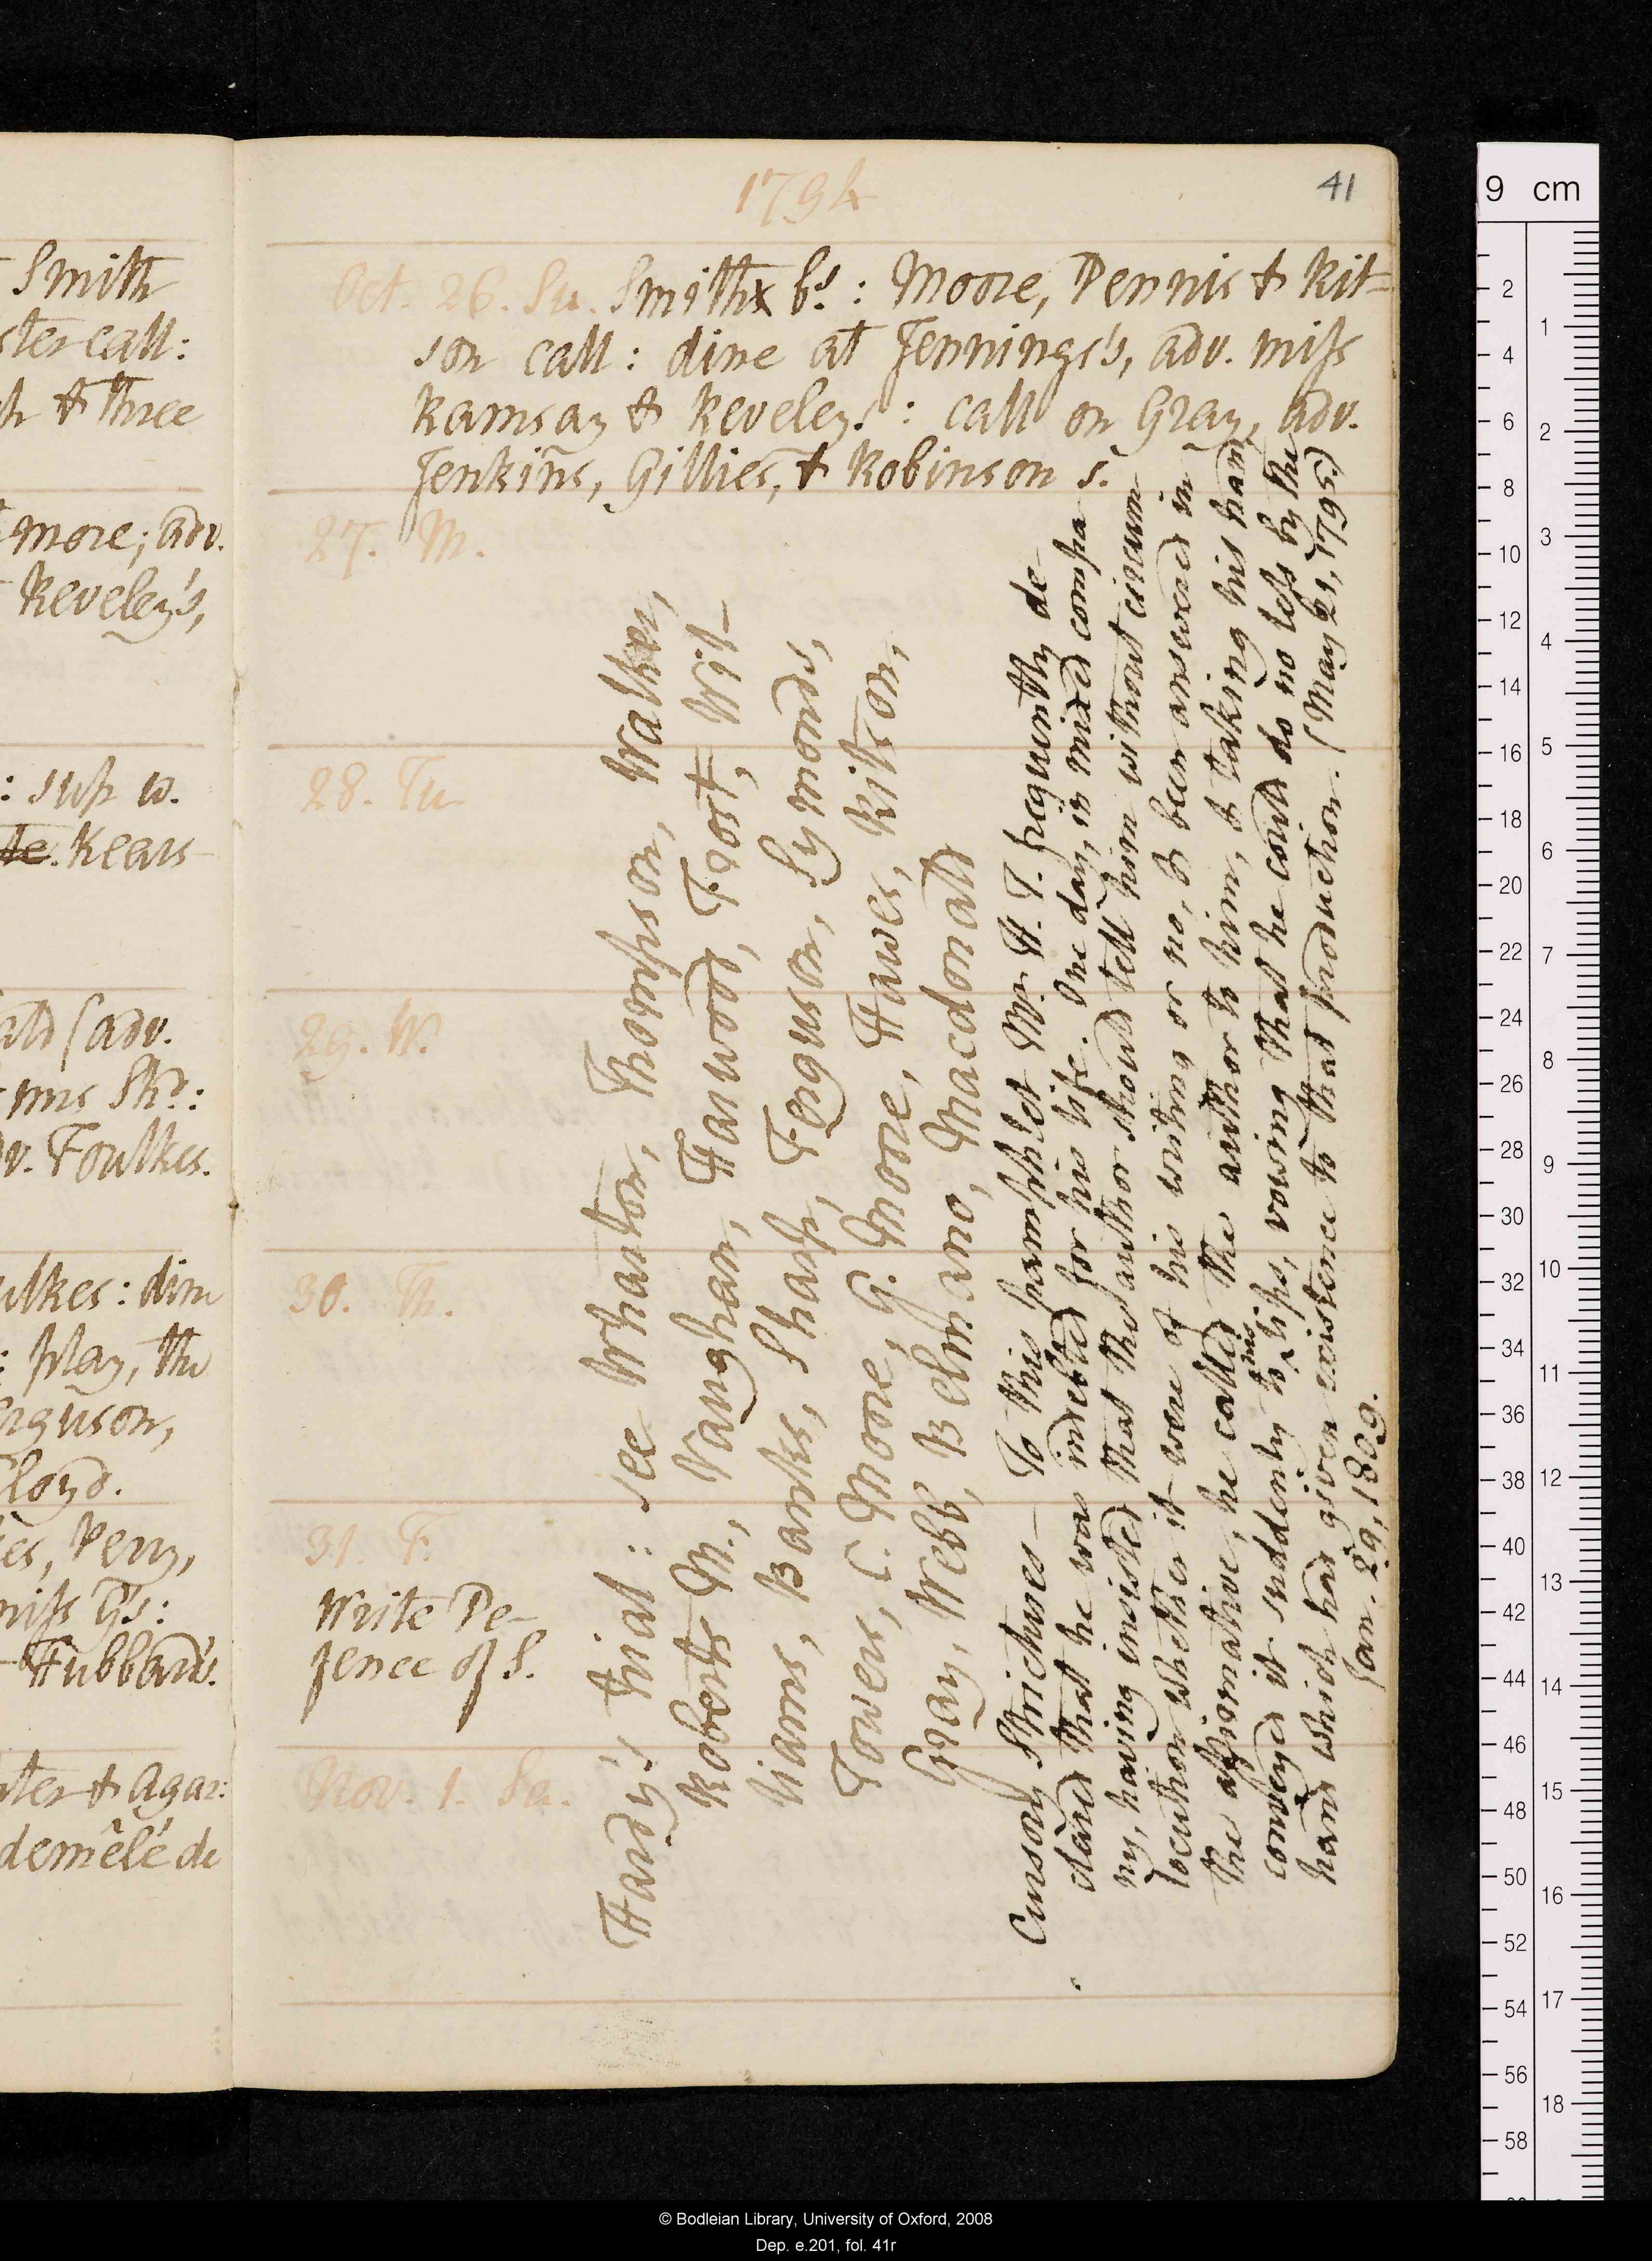 Smith
ster call:
h & three
more; adv.
Reveley's,
: sup w.
Kears-
ald (adv.
ms Shn:
v. Foulkes.
ulkes: dine
: play, the
erguson,
loyd.
es, Perry,
miss G's:
Hubbard's.
ter & Agar:
demêlé de
1794
41
Oct. 26. Su. Smithx bs: Moore, Dennis & Kit-
son call: dine at Jennings's, adv. miss
Ramsay & Reveleys: call on Gray, adv.
Jenkins, Gillies, & Robinson s.
27. M.
28. Tu
29. W.
30. Th.
31. F.
Write De-
fence of S.
Nov. 1. Sa.
Hardy's trial: see Wharton, Thompson, Walker,
Roberts M., Vaughan, Harwood, Frost, Wil-
liams, Banks, Sharp, Ferguson, Symonds,
Towers, C. Moore, G. Moore, Hawes, Kitson,
Gray, Webb, Belmano, Macdonald
Cursory Strictures — To this pamphlet Mr. H. T. frequently de-
clared that he was indebted for his life. One day, in mixed compa
ny, having insisted that the author should tell him without circum
locution whether it were of his writing or no, & been answered in
the affirmative, he called the author to him, & taking his hand
conveyed it suddenly to his lips, vowing that he could do no less by the
hand which had given existence to that production. (May 21, 1795)
Jan. 29, 1809.
9 cm
2
4
6
8
10
12
14
16
18
20
22
24
26
28
30
32
34
36
38
40
42
44
46
48
50
52
54
56
58
1
2
3
4
5
6
7
8
9
10
11
12
13
14
15
16
17
18
© Bodleian Library, University of Oxford, 2008
Dep. e.201, fol. 41r